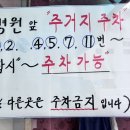 병원 앞 "주거지 주차
0,2. 4.5.7, 11번 ~
시"~ 주차가능"
다른곳은 주차금지 입니다